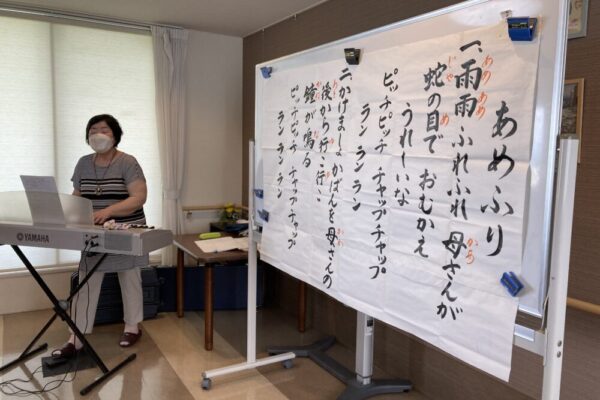 あめふり
あめあめ かあ
一、雨雨ふれふれ母さんが
じゃ め
蛇の目で おむかえ
うれしいな
ピッチピッチ チャップチャップ
ラン ラン ラン
かあ
二、かけましょかばんを母さんの
後から行こ行こ
鐘が鳴る
ピッチピッチ チャップチャップ
ラン ラン ラン
YAMAHA